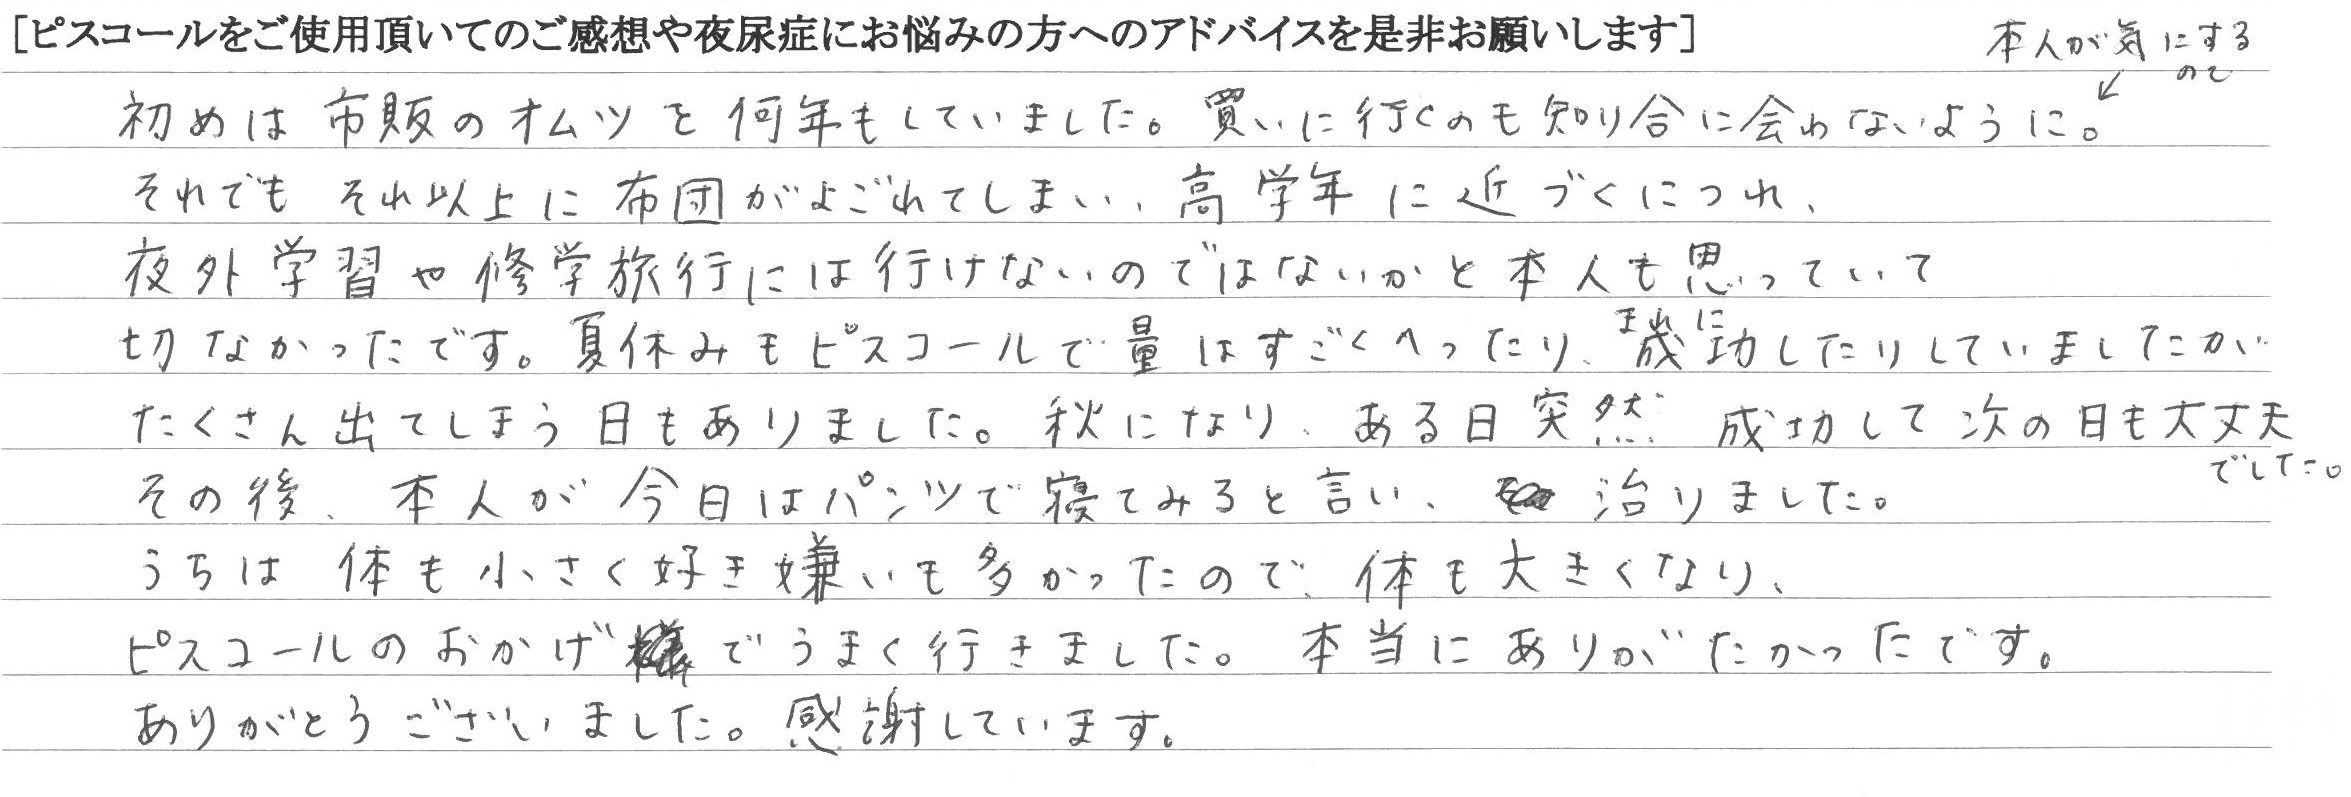 [ピスコールをご使用頂いてのご感想や夜尿症にお悩みの方へのアドバイスを是非お願いします]
本人が気にする
ので
初めは市販のオムツを何年もしていました。買いに行くのも知り合に会わないように。
それでもそれ以上に布団がよごれてしまい、高学年に近づくにつれ、
夜外学習や修学旅行には行けないのではないかと本人も思っていて
まれに
切なかったです。夏休みもピスコールで量はすごくへったり、成功したりしていましたが
たくさん出てしまう日もありました。秋になり、ある日突然 成功して次の日も大丈夫
でした。
その後、本人が今日はパンツで寝てみると言い、治りました。
うちは 体も小さく好き嫌いも多かったので、体も大きくなり、
ピスコールのおかげ様でうまく行きました。本当にありがたかったです。
ありがとうございました。感謝しています。